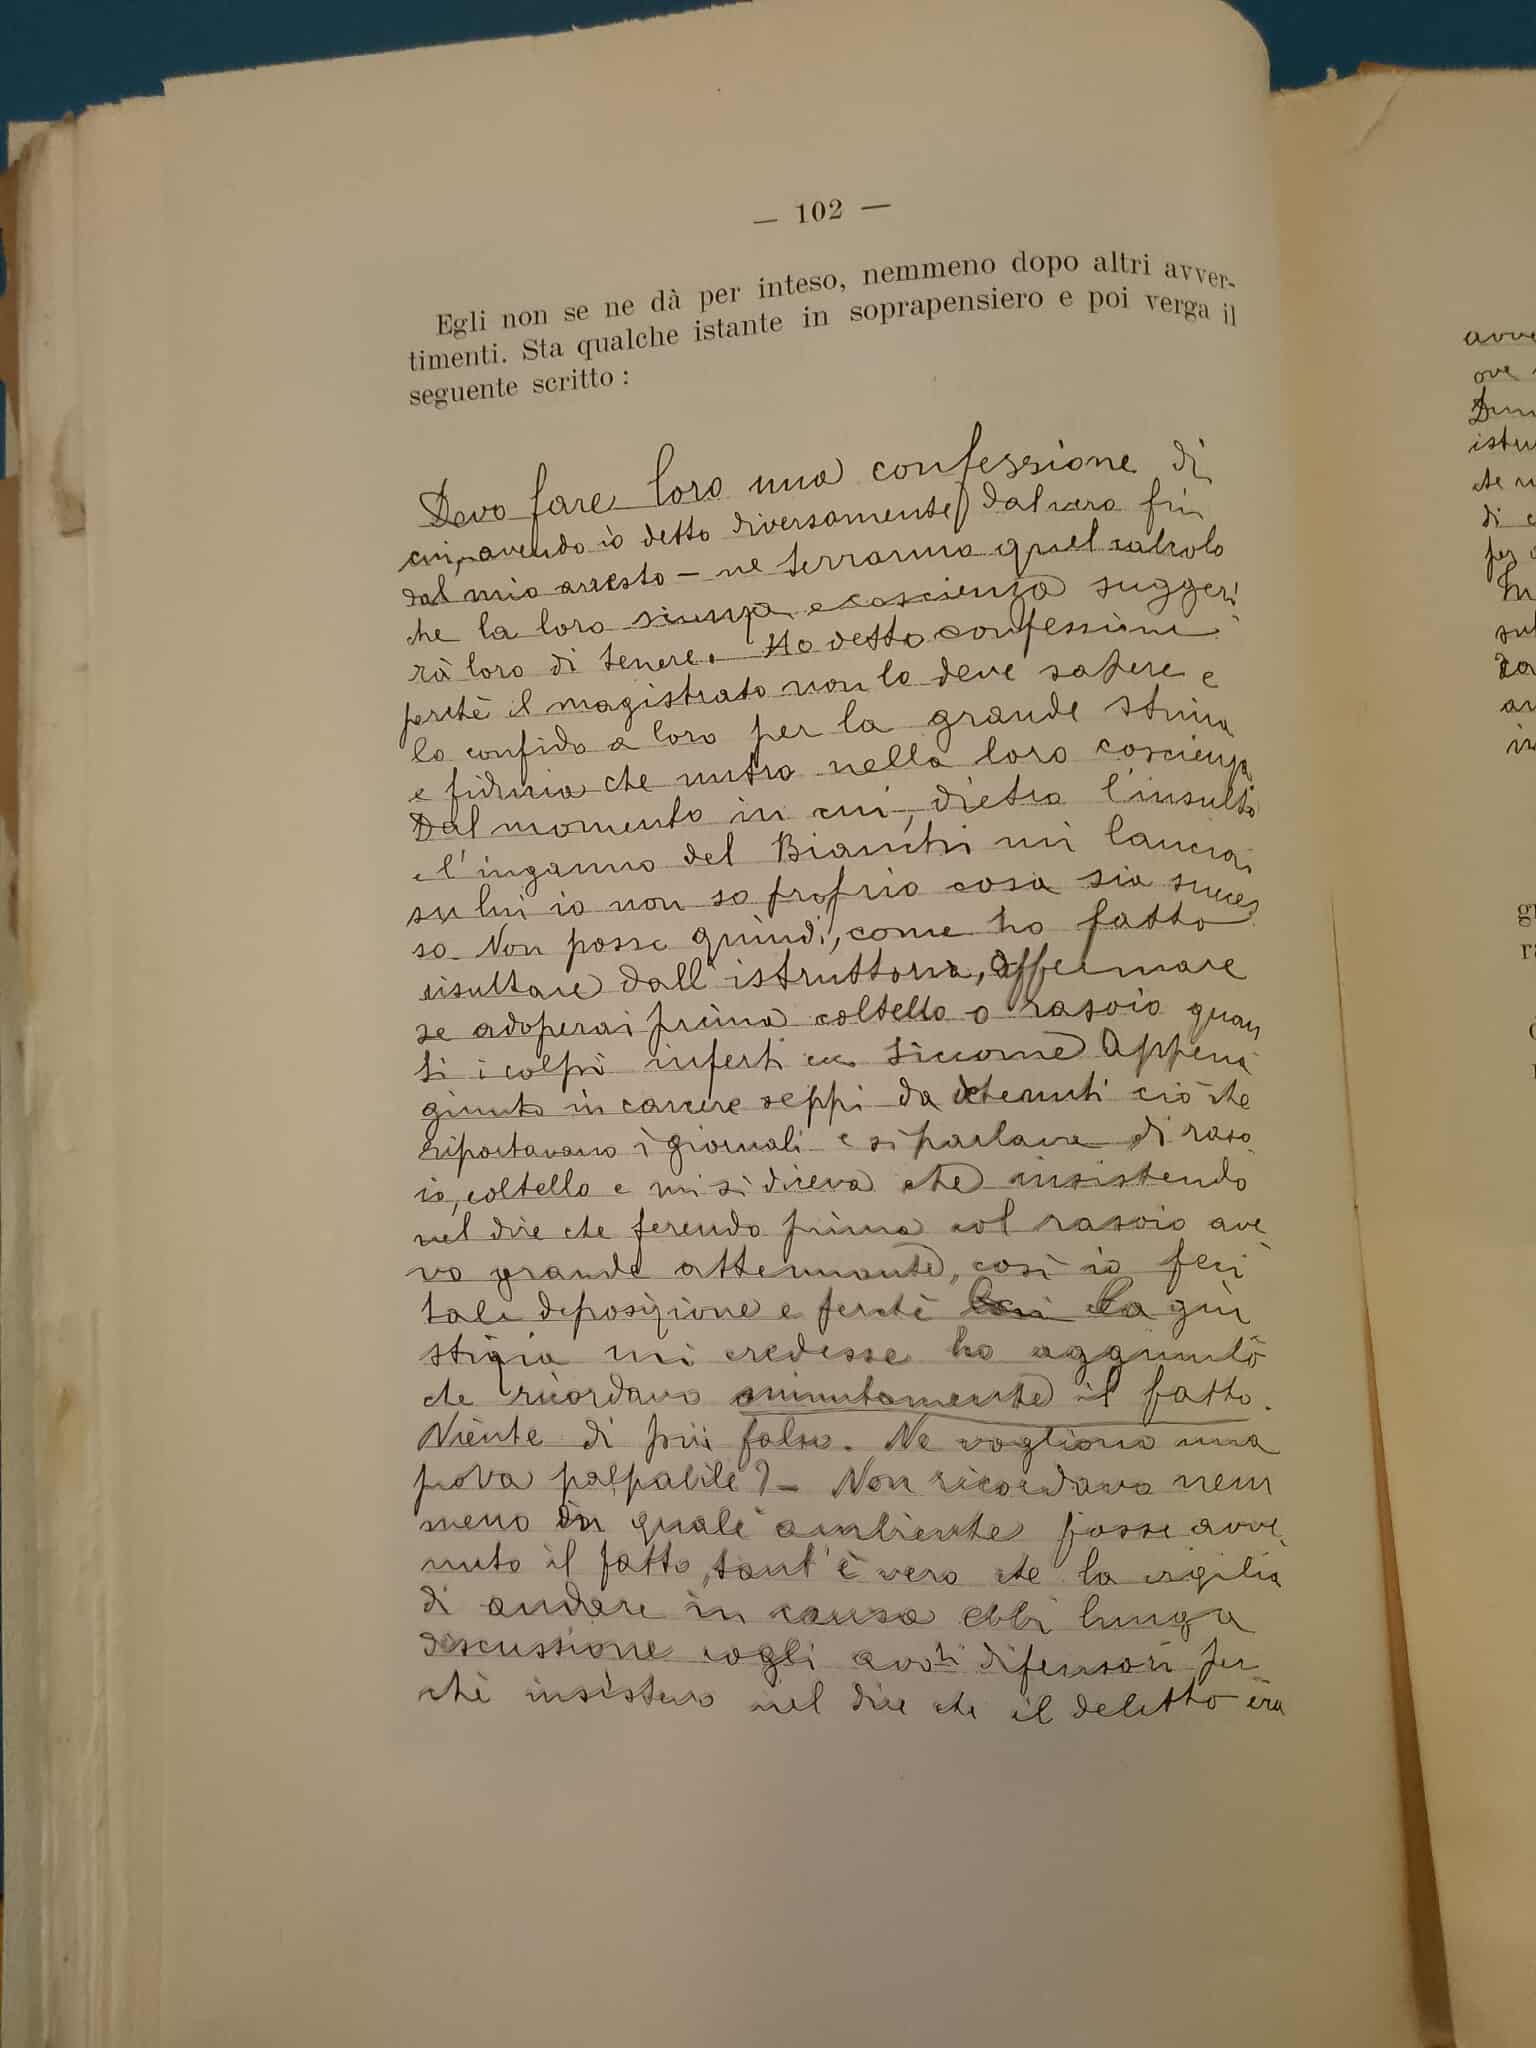 — 102 —
Egli non se ne dà per inteso, nemmeno dopo altri avver-
timenti. Sta qualche istante in soprapensiero e poi verga il
seguente scritto :
Devo fare loro una confessione di
cui, avendo io detto diversamente dal vero fin
dal mio arresto — ne terranno quel calcolo
che la loro scienza e coscienza suggeri
rà loro di tenere. Ho detto confessione
perchè il magistrato non lo deve sapere e
lo confido a loro per la grande stima
e fiducia che nutro nella loro coscienza
Dal momento in cui, dietro l'insulto
e l'inganno del Bianchi mi lanciai
su lui io non so proprio cosa sia succes
so. Non posso quindi, come ho fatto
risultare dall'istruttoria, affermare
se adoperai prima coltello o rasoio quan
ti i colpi inferti ecc Siccome appena
giunto in carcere seppi da detenuti ciò che
riportavano i giornali e si parlava di raso
io, coltello e mi si diceva che insistendo
nel dire che ferendo prima col rasoio ave
vo grande attenuante, così io feci
tale deposizione e perchè la giu
stizia mi credesse ho aggiunto
che ricordavo minutamente il fatto.
Niente di più falso. Ne vogliono una
prova palpabile? — Non ricordavo nem
meno in quale ambiente fosse avve
nuto il fatto, tant'è vero che la vigilia
di andare in causa ebbi lunga
discussione cogli avo.ti difensori per
chè insistevo nel dire che il delitto era
avve
ove
istu
che
di
per